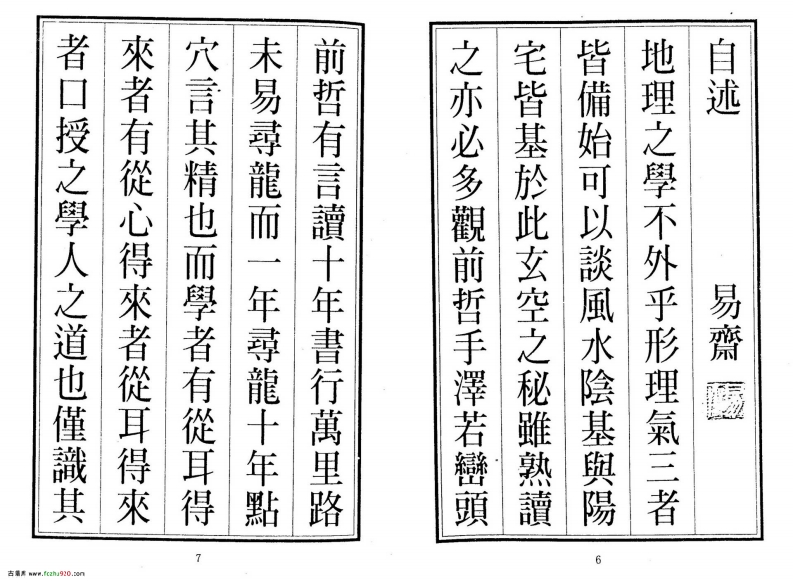 自述 易齋
地理之學不外乎形理氣三者
皆備始可以談風水陰基與陽
宅皆基於此玄空之秘雖熟讀
之亦必多觀前哲手澤若巒頭
6
前哲有言讀十年書行萬里路
未易尋龍而一年尋龍十年點
穴言其精也而學者有從耳得
來者有從心得來者從耳得來
者口授之學人之道也僅識其
7
www.fczhu920.com